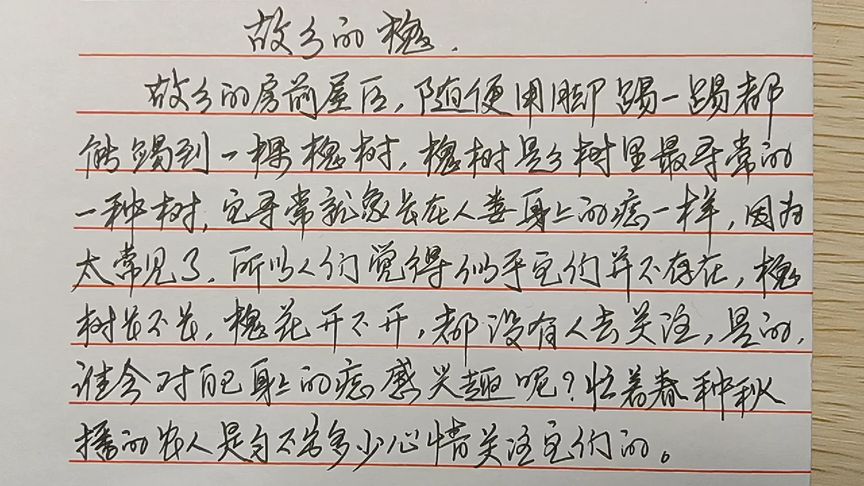 故乡的槐.
故乡的房前屋后,随便用脚踢一踢都
能踢到一棵槐树,槐树是乡村里最寻常的
一种树,它寻常就象长在人类身上的痣一样,因为
太常见了.所以人们觉得似乎它们并不存在,槐
树长不长,槐花开不开,都没有人去关注,是的,
谁会对自己身上的痣感兴趣呢?忙着春种秋
播的农人是匀不出多少心情关注它们的。